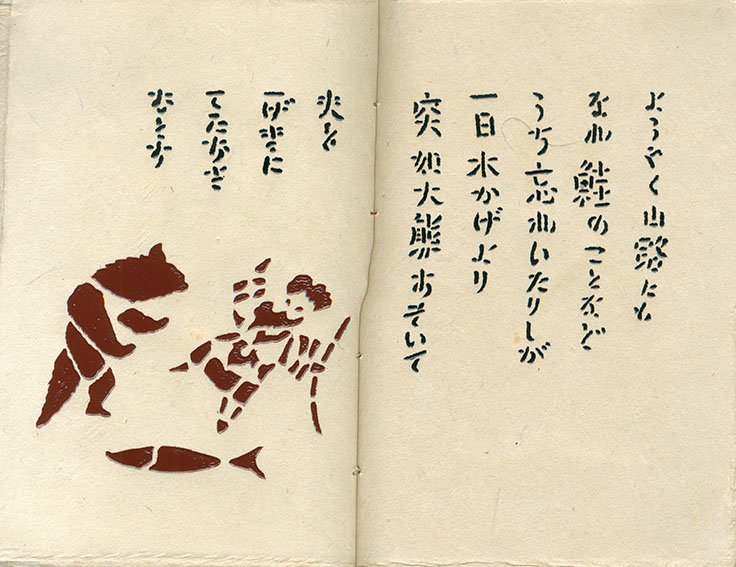 ようやく山路にも
なれ鮭のことなど
うち忘れいたりしが
一日木かげより
突如大熊おそいて
夫を
一げきに
てたおさ
んとす